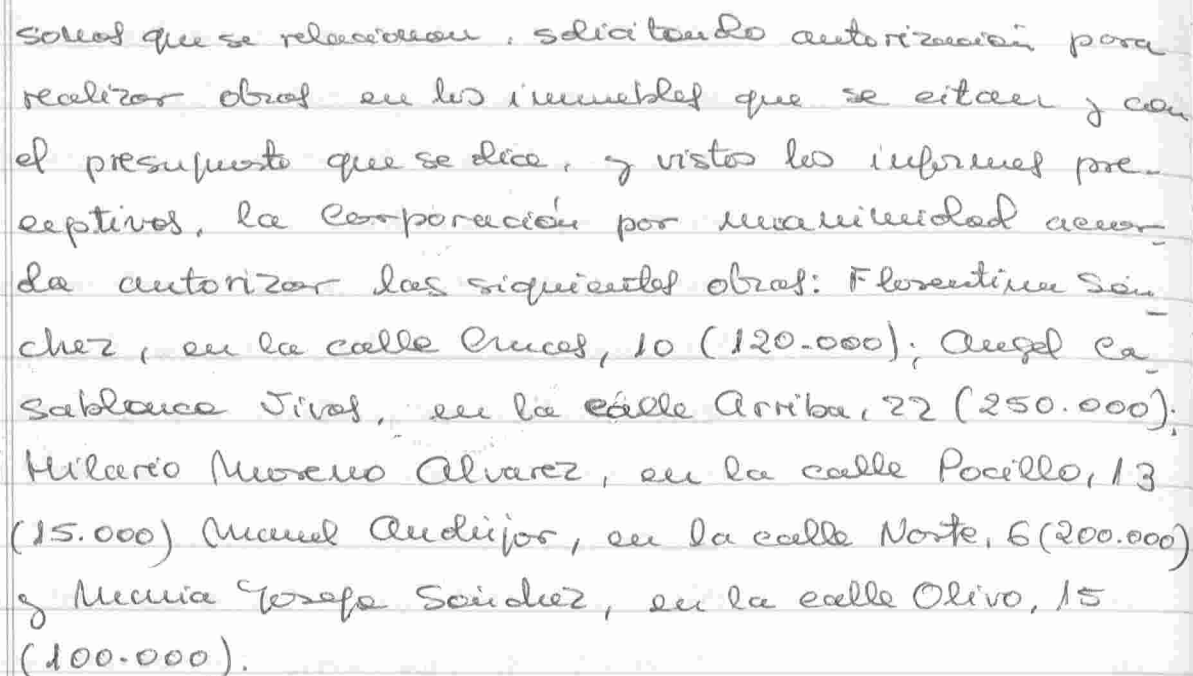 sonas que se relacionan, solicitando autorización para
realizar obras en los inmuebles que se citan y con
el presupuesto que se dice, y vistos los informes pre-
ceptivos, la Corporación por unanimidad acuer-
da autorizar las siguientes obras: Florentina Sán-
chez, en la calle Cruces, 10 (120.000); Angel Ca-
sablanca Vivas, en la calle Arriba, 22 (250.000);
Hilario Moreno Alvarez, en la calle Pocillo, 13
(15.000) Manuel Andújar, en la calle Norte, 6 (200.000)
y María Josefa Sánchez, en la calle Olivo, 15
(100.000).